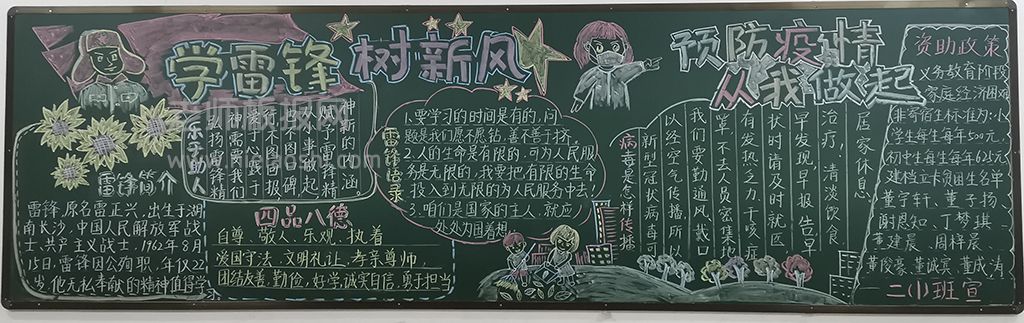 学雷锋 树新风
乐于助人
神新的内涵
赋予雷锋精
雷锋简介
雷锋,原名雷正兴,出生于湖
南长沙,中国人民解放军战
士,共产主义战士,1962年8月
15日,雷锋因公殉职,年仅22
岁,他无私奉献的精神值得学
四品八德
自尊、敬人、乐观、执着
爱国守法,文明礼让,孝亲尊师,
团结友善,勤俭,好学,诚实自信,勇于担当
雷锋语录
1.要学习的时间是有的,问
题是我们愿不愿钻,善不善于挤,
2.人的生命是有限的,可为人民服
务是无限的,我要把有限的生命
投入到无限的为人民服务中去,
3、咱们是国家的主人,就应
处处为国着想
预防疫情
从我做起
病毒是怎样传播
新型冠状病毒可
以经空气传播,所以
我们要勤通风,戴口
罩,不去人员密集地
有发热乏力,干咳症
状时请及时就医
早发现,早报告早
治疗,清淡饮食
居家休息
资助政策
义务教育阶段
家庭经济困难
非寄宿生标准为:小
学生每生每年500元,
初中生每生每年625元
建档立卡贫困生名单
董宇轩、董子扬、
谢恩知、丁梦琪、
董建晨、周梓宸、
黄俊豪、董诚宾、董成涛
二(1)班宣